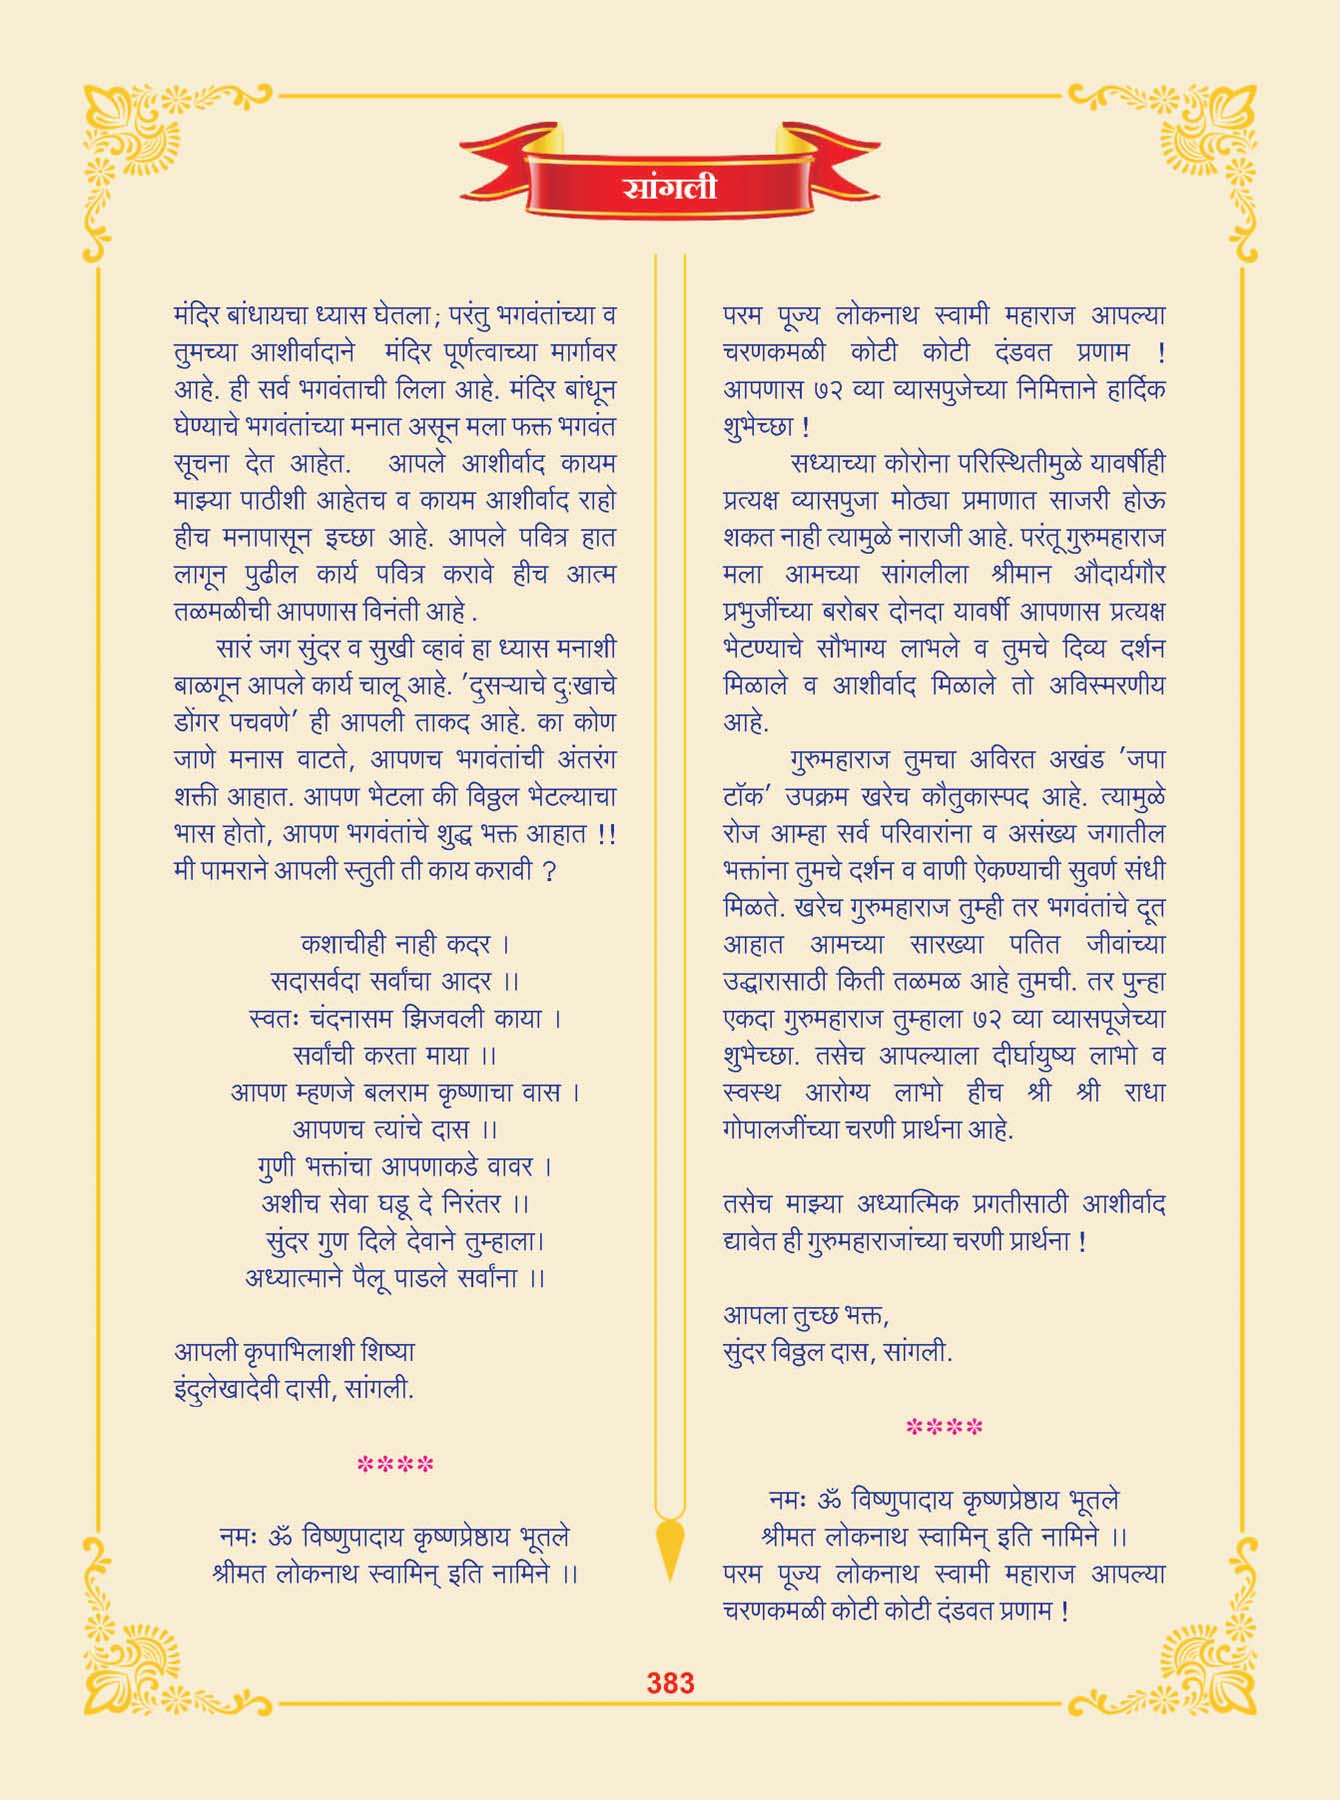 सांगली
मंदिर बांधायचा ध्यास घेतला; परंतु भगवंतांच्या व
तुमच्या आशीर्वादाने मंदिर पूर्णत्वाच्या मार्गावर
आहे. ही सर्व भगवंताची लिला आहे. मंदिर बांधून
घेण्याचे भगवंतांच्या मनात असून मला फक्त भगवंत
सूचना देत आहेत. आपले आशीर्वाद कायम
माझ्या पाठीशी आहेतच व कायम आशीर्वाद राहो
हीच मनापासून इच्छा आहे. आपले पवित्र हात
लागून पुढील कार्य पवित्र करावे हीच आत्म
तळमळीची आपणास विनंती आहे .
सारं जग सुंदर व सुखी व्हावं हा ध्यास मनाशी
बाळगून आपले कार्य चालू आहे. ’दुसऱ्याचे दुःखाचे
डोंगर पचवणे’ ही आपली ताकद आहे. का कोण
जाणे मनास वाटते, आपणच भगवंतांची अंतरंग
शक्ती आहात. आपण भेटला की विठ्ठल भेटल्याचा
भास होतो, आपण भगवंतांचे शुद्ध भक्त आहात !!
मी पामराने आपली स्तुती ती काय करावी ?
कशाचीही नाही कदर ।
सदासर्वदा सर्वांचा आदर ।।
स्वतः चंदनासम झिजवली काया ।
सर्वांची करता माया ।।
आपण म्हणजे बलराम कृष्णाचा वास ।
आपणच त्यांचे दास ।।
गुणी भक्तांचा आपणाकडे वावर ।
अशीच सेवा घडू दे निरंतर ।।
सुंदर गुण दिले देवाने तुम्हाला।
अध्यात्माने पैलू पाडले सर्वांना ।।
आपली कृपाभिलाशी शिष्या
इंदुलेखादेवी दासी, सांगली.
****
नमः ॐ विष्णुपादाय कृष्णप्रेष्ठाय भूतले
श्रीमत लोकनाथ स्वामिन् इति नामिने ।।
परम पूज्य लोकनाथ स्वामी महाराज आपल्या
चरणकमळी कोटी कोटी दंडवत प्रणाम !
आपणास ७२ व्या व्यासपुजेच्या निमित्ताने हार्दिक
शुभेच्छा !
सध्याच्या कोरोना परिस्थितीमुळे यावर्षीही
प्रत्यक्ष व्यासपुजा मोठ्या प्रमाणात साजरी होऊ
शकत नाही त्यामुळे नाराजी आहे. परंतू गुरुमहाराज
मला आमच्या सांगलीला श्रीमान औदार्यगौर
प्रभुजींच्या बरोबर दोनदा यावर्षी आपणास प्रत्यक्ष
भेटण्याचे सौभाग्य लाभले व तुमचे दिव्य दर्शन
मिळाले व आशीर्वाद मिळाले तो अविस्मरणीय
आहे.
गुरुमहाराज तुमचा अविरत अखंड ’जपा
टॉक’ उपक्रम खरेच कौतुकास्पद आहे. त्यामुळे
रोज आम्हा सर्व परिवारांना व असंख्य जगातील
भक्तांना तुमचे दर्शन व वाणी ऐकण्याची सुवर्ण संधी
मिळते. खरेच गुरुमहाराज तुम्ही तर भगवंतांचे दूत
आहात आमच्या सारख्या पतित जीवांच्या
उद्धारासाठी किती तळमळ आहे तुमची. तर पुन्हा
एकदा गुरुमहाराज तुम्हाला ७२ व्या व्यासपूजेच्या
शुभेच्छा. तसेच आपल्याला दीर्घायुष्य लाभो व
स्वस्थ आरोग्य लाभो हीच श्री श्री राधा
गोपालजींच्या चरणी प्रार्थना आहे.
तसेच माझ्या अध्यात्मिक प्रगतीसाठी आशीर्वाद
द्यावेत ही गुरुमहाराजांच्या चरणी प्रार्थना !
आपला तुच्छ भक्त,
सुंदर विठ्ठल दास, सांगली.
****
नमः ॐ विष्णुपादाय कृष्णप्रेष्ठाय भूतले
श्रीमत लोकनाथ स्वामिन् इति नामिने ।।
परम पूज्य लोकनाथ स्वामी महाराज आपल्या
चरणकमळी कोटी कोटी दंडवत प्रणाम !
383